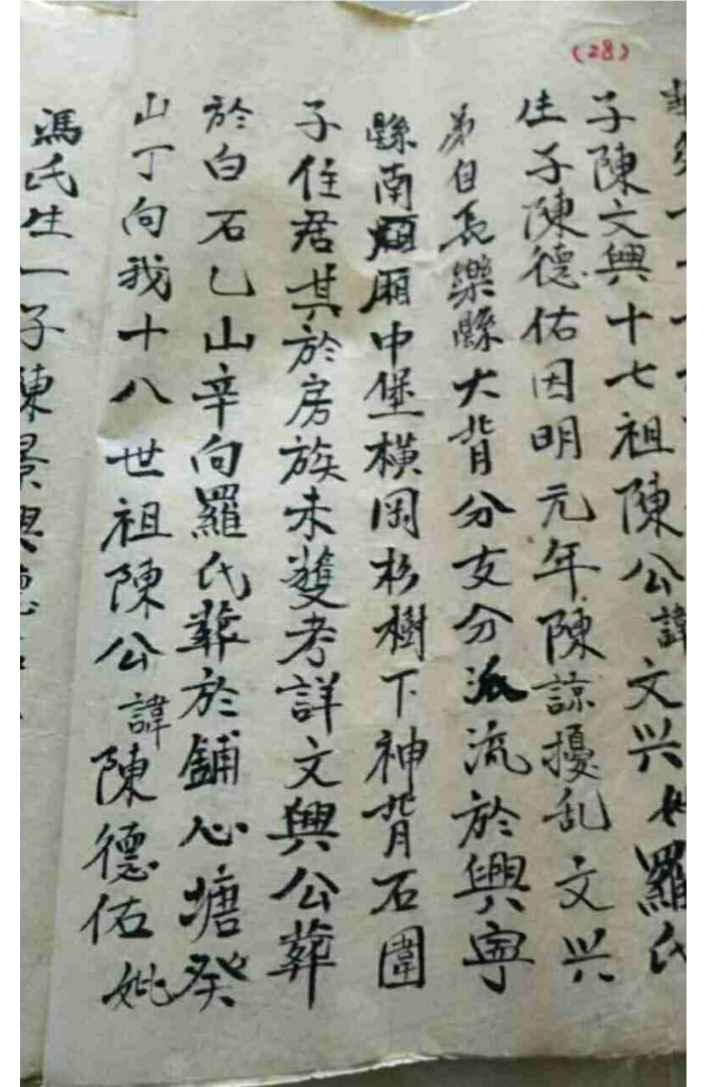 (28)
子陳文興十七祖陳公諱文兴妣羅氏
生子陳德佑因明元年陳諒擾乱文兴
弟自長樂縣大背分支分派流於興寧
縣南厢中堡橫岡杉樹下神背石圍
子住居其於房族未獲考詳文興公葬
於白石乙山辛向羅氏葬於鋪心塘癸
山丁向我十八世祖陳公諱陳德佑妣
馮氏生一子陳景興德